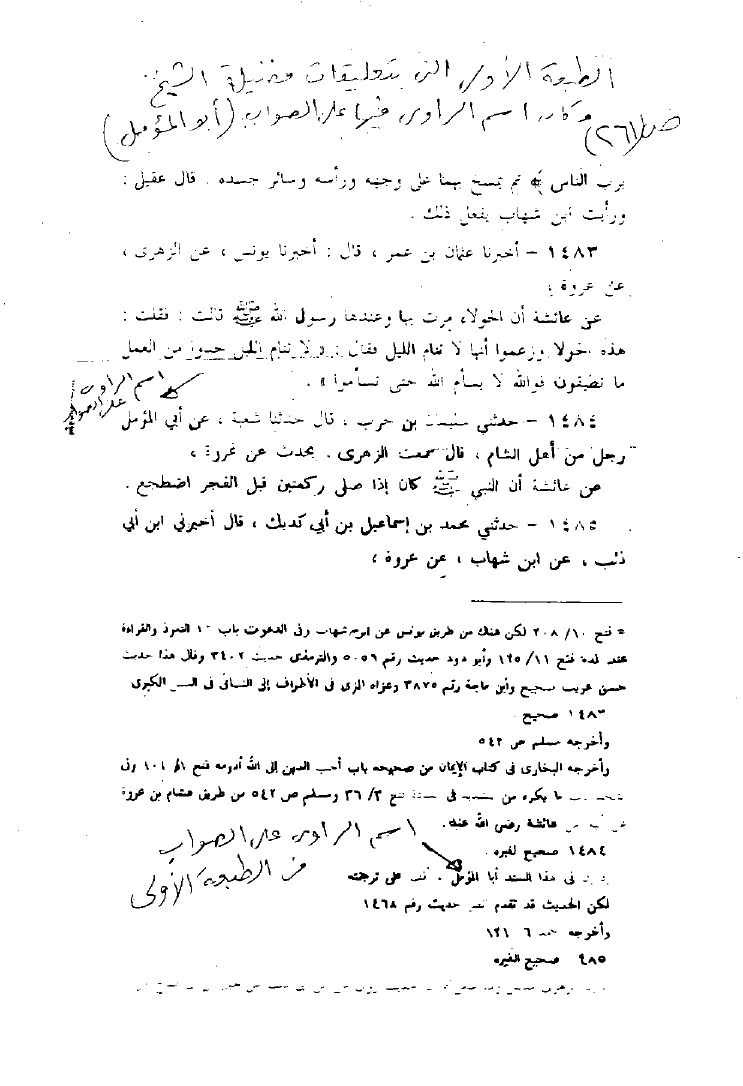 الطبعة الأولى التى بتعليقات فضيلة الشيخ
ص (٢٦) وكان اسم الراوى فيها على الصواب (أبو المؤمل)
برب الناس ثم يمسح بهما على وجهه ورأسه وسائر جسده . قال عقيل :
ورأيت ابن شهاب يفعل ذلك .
١٤٨٣ – أخبرنا عثمان بن عمر ، قال : أخبرنا يونس ، عن الزهرى ،
عن عروة ؛
عن عائشة أن الحولاء مرت بها وعندها رسول الله ﷺ قالت : فقلت :
هذه الحولا وزعموا أنها لا تنام الليل فقال : لا تنام الليل خذوا من العمل
ما تطيقون فوالله لا يسأم الله حتى تسأموا » .
اسم الراوى
على الصواب
١٤٨٤ – حدثني سليمان بن حرب ، قال حدثنا شعبة ، عن أبي المؤمل
رجل من أهل الشام ، قال سمعت الزهرى . يحدث عن عروة ،
عن عائشة أن النبي ﷺ كان إذا صلى ركعتين قبل الفجر اضطجع .
١٤٨٥ – حدثني محمد بن إسماعيل بن أبي كديك ، قال أخبرني ابن أبي
ذئب ، عن ابن شهاب ، عن عروة ؛
= فتح ١٠/ ٢٠٨ لكن هناك من طريق يونس عن ابن شهاب وفى الدعوات باب التعوذ والقراءة
عند فتح ١١/ ١٢٥ وأبو دود حديث رقم ٥٠٥٦ والترمذى حديث ٣٤٠٢ وقال هذا حديث
حسن غريب صحيح وابن ماجة رقم ٣٨٧٥ وعزاه المزى فى الأطراف إلى النسائى فى السنن الكبرى
١٤٨٣ صحيح .
وأخرجه مسلم ص ٥٤٢
وأخرجه البخارى فى كتاب الإيمان من صحيحه باب أحب الدين إلى الله أدومه فتح ١/ ١٠١ وفى
ما يكره من فى فتح ٣/ ٣٦ ومسلم ص ٥٤٢ من طريق هشام بن عروة
عن عائشة رضى الله عنها .
اسم الراوى على الصواب
من الطبعة الأولى
١٤٨٤ صحيح لغيره .
فى هذا السند أبا المؤمل . على ترجمته
لكن الحديث قد تقدم حديث رقم ١٤٦٨
وأخرجه ٦ ١٢١
٤٨٥ صحيح لغيره